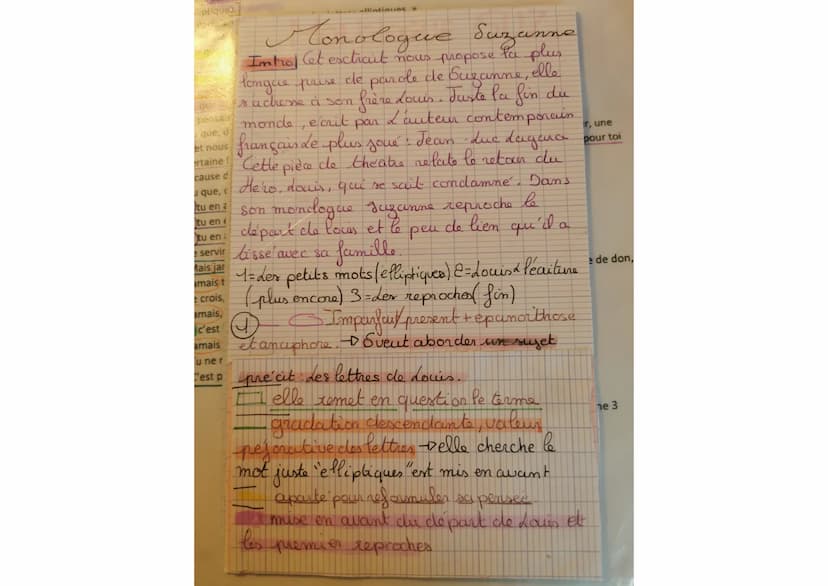 elliptiques »
pliqués
Monologue Suzanne
Intro/ Cet esctrait nous propose la plus
longue prise de parole de Suzanne, elle
s'adresse à son frère Louis. Juste la fin du
monde, écrit par l'auteur contemporain
français le plus joué : Jean-Luc Lagarce
Cette pièce de théâtre relate le retour du
Héro, Louis, qui se sait condamné. Dans
son monologue Suzanne reproche le
départ de Louis et le peu de lien qu'il a
tissé avec sa famille.
1=Les petits mots (elliptiques) 2=Louis & l'écriture
(plus encore) 3=des reproches (fin)
1 Imparfait/présent + épanorthose
et anaphore. → S veut aborder un sujet
précit : les lettres de Louis.
elle remet en question le terme
gradation descendante, valeur
péjorative des lettres → elle cherche le
mot juste "elliptiques" est mis en avant
aparté pour reformuler sa pensée
mise en avant du départ de Louis et
les premier reproches
que, d
et nous
rtaine f
cause d
u que, e
tu en a
tu en e
tu en a
e servir
Mais jam
amais t
e crois,
amais,
c'est
amais
u ne r
C'est p
r, une
pour toi
e de don,
ne 3